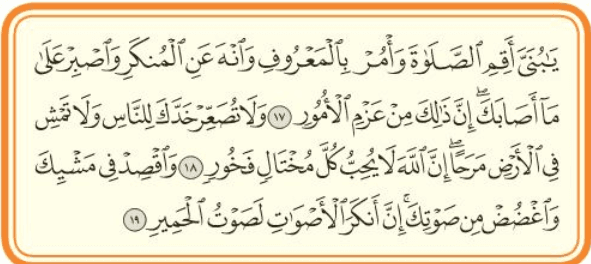 يَٰبُنَيَّ أَقِمِ ٱلصَّلَوٰةَ وَأۡمُرۡ بِٱلۡمَعۡرُوفِ وَٱنۡهَ عَنِ ٱلۡمُنكَرِ وَٱصۡبِرۡ عَلَىٰ
مَآ أَصَابَكَۖ إِنَّ ذَٰلِكَ مِنۡ عَزۡمِ ٱلۡأُمُورِ ١٧ وَلَا تُصَعِّرۡ خَدَّكَ لِلنَّاسِ وَلَا تَمۡشِ
فِي ٱلۡأَرۡضِ مَرَحًاۖ إِنَّ ٱللَّهَ لَا يُحِبُّ كُلَّ مُخۡتَالٖ فَخُورٖ ١٨ وَٱقۡصِدۡ فِي مَشۡيِكَ
وَٱغۡضُضۡ مِن صَوۡتِكَۚ إِنَّ أَنكَرَ ٱلۡأَصۡوَٰتِ لَصَوۡتُ ٱلۡحَمِيرِ ١٩